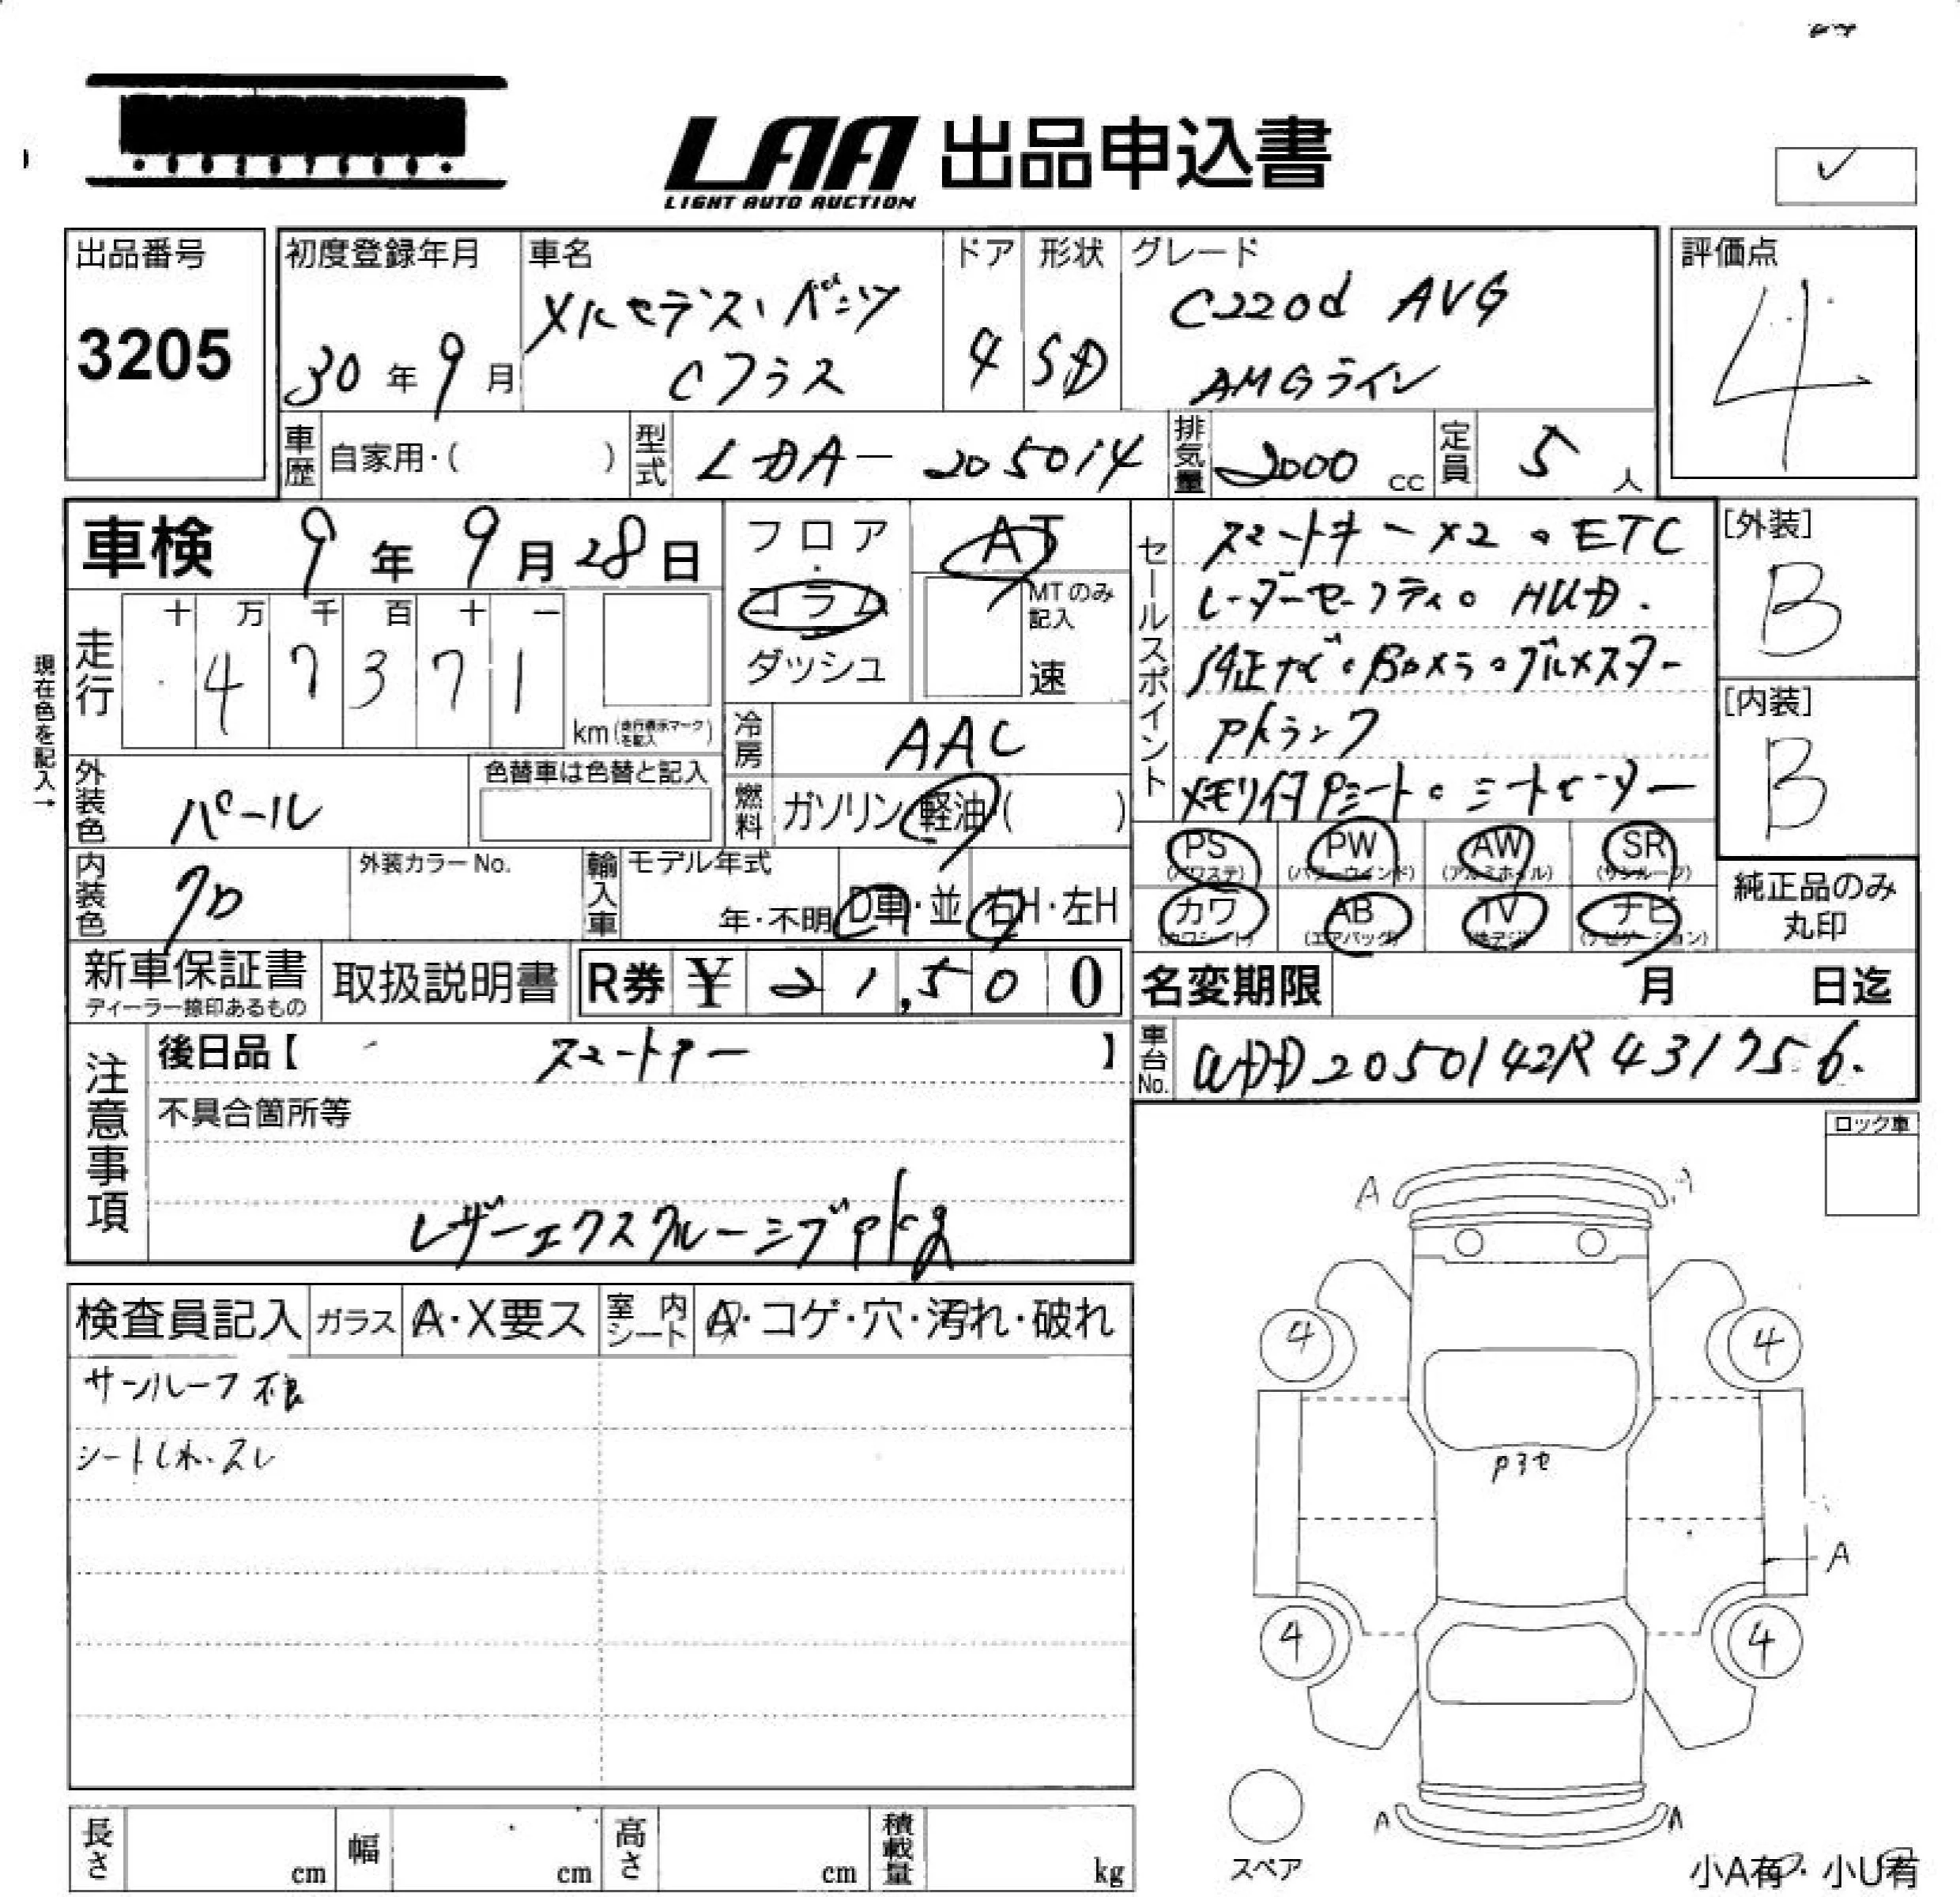 LAA 出品申込書
LIGHT AUTO AUCTION
出品番号
3205
初度登録年月
30 年 9 月
車名
メルセデス・ベンツ
Cクラス
ドア
4
形状
SD
グレード
C220d AVG
AMGライン
評価点
4
車歴 自家用・( )
型式 LDA-205014
排気量 2000 cc
定員 5 人
車検 9 年 9 月 28 日
フロア・コラム
ダッシュ
AT
MTのみ記入
速
走行
十 万 千 百 十 一
4 7 3 7 1
km (走行表示マークを記入)
現在色を記入→
冷房 AAC
燃料 ガソリン 軽油 ( )
外装色 パール
色替車は色替と記入
内装色 クロ
外装カラーNo.
輸入車 モデル年式
年・不明 D車・並 右H・左H
セールスポイント
スマートキー×2。ETC
レーダーセーフティ。HUD.
純正ナビ。Bカメラ。ブルメスター
Pトランク
メモリ付Pシート。シートヒーター
[外装]
B
[内装]
B
PS (パワステ)
PW (パワーウインド)
AW (アルミホイル)
SR (サンルーフ)
カワ (カワシート)
AB (エアバッグ)
TV (地デジ)
ナビ (ナビゲーション)
純正品のみ
丸印
新車保証書
ディーラー捺印あるもの
取扱説明書
R券 ¥ 21,500
名変期限 月 日迄
車台No. WDD2050142R431756.
注意事項
後日品【 スマートキー 】
不具合箇所等
レザーエクスクルーシブpkg
ロック車
検査員記入
ガラス A・X要ス
室内シート A・コゲ・穴・汚れ・破れ
サンルーフ不良
シートしわ.スレ
A A
4 4
A
4 4
A A
スペア
小A有・小U有
長さ cm
幅 cm
高さ cm
積載量 kg